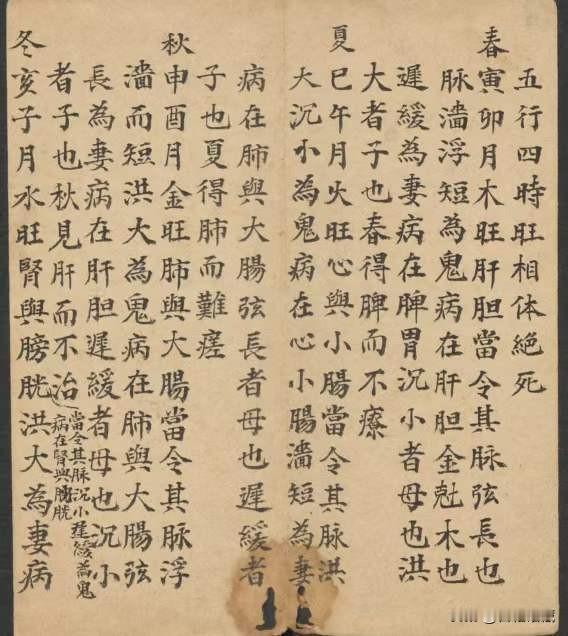 五行四時旺相体絶死
春
寅卯月木旺肝胆當令其脉弦長也
脉濇浮短為鬼病在肝胆金尅木也
遲緩為妻病在脾胃沉小者母也洪
大者子也春得脾而不療
夏
巳午月火旺心與小腸當令其脉洪
大沉小為鬼病在心小腸濇短為妻
病在肺與大腸弦長者母也遲緩者
子也夏得肺而難瘥
秋
申酉月金旺肺與大腸當令其脉浮
濇而短洪大為鬼病在肺與大腸弦
長為妻病在肝胆遲緩者母也沉小
者子也秋見肝而不治
當令其脉沉小遲緩為鬼
病在腎與膀胱
冬
亥子月水旺腎與膀胱洪大為妻病